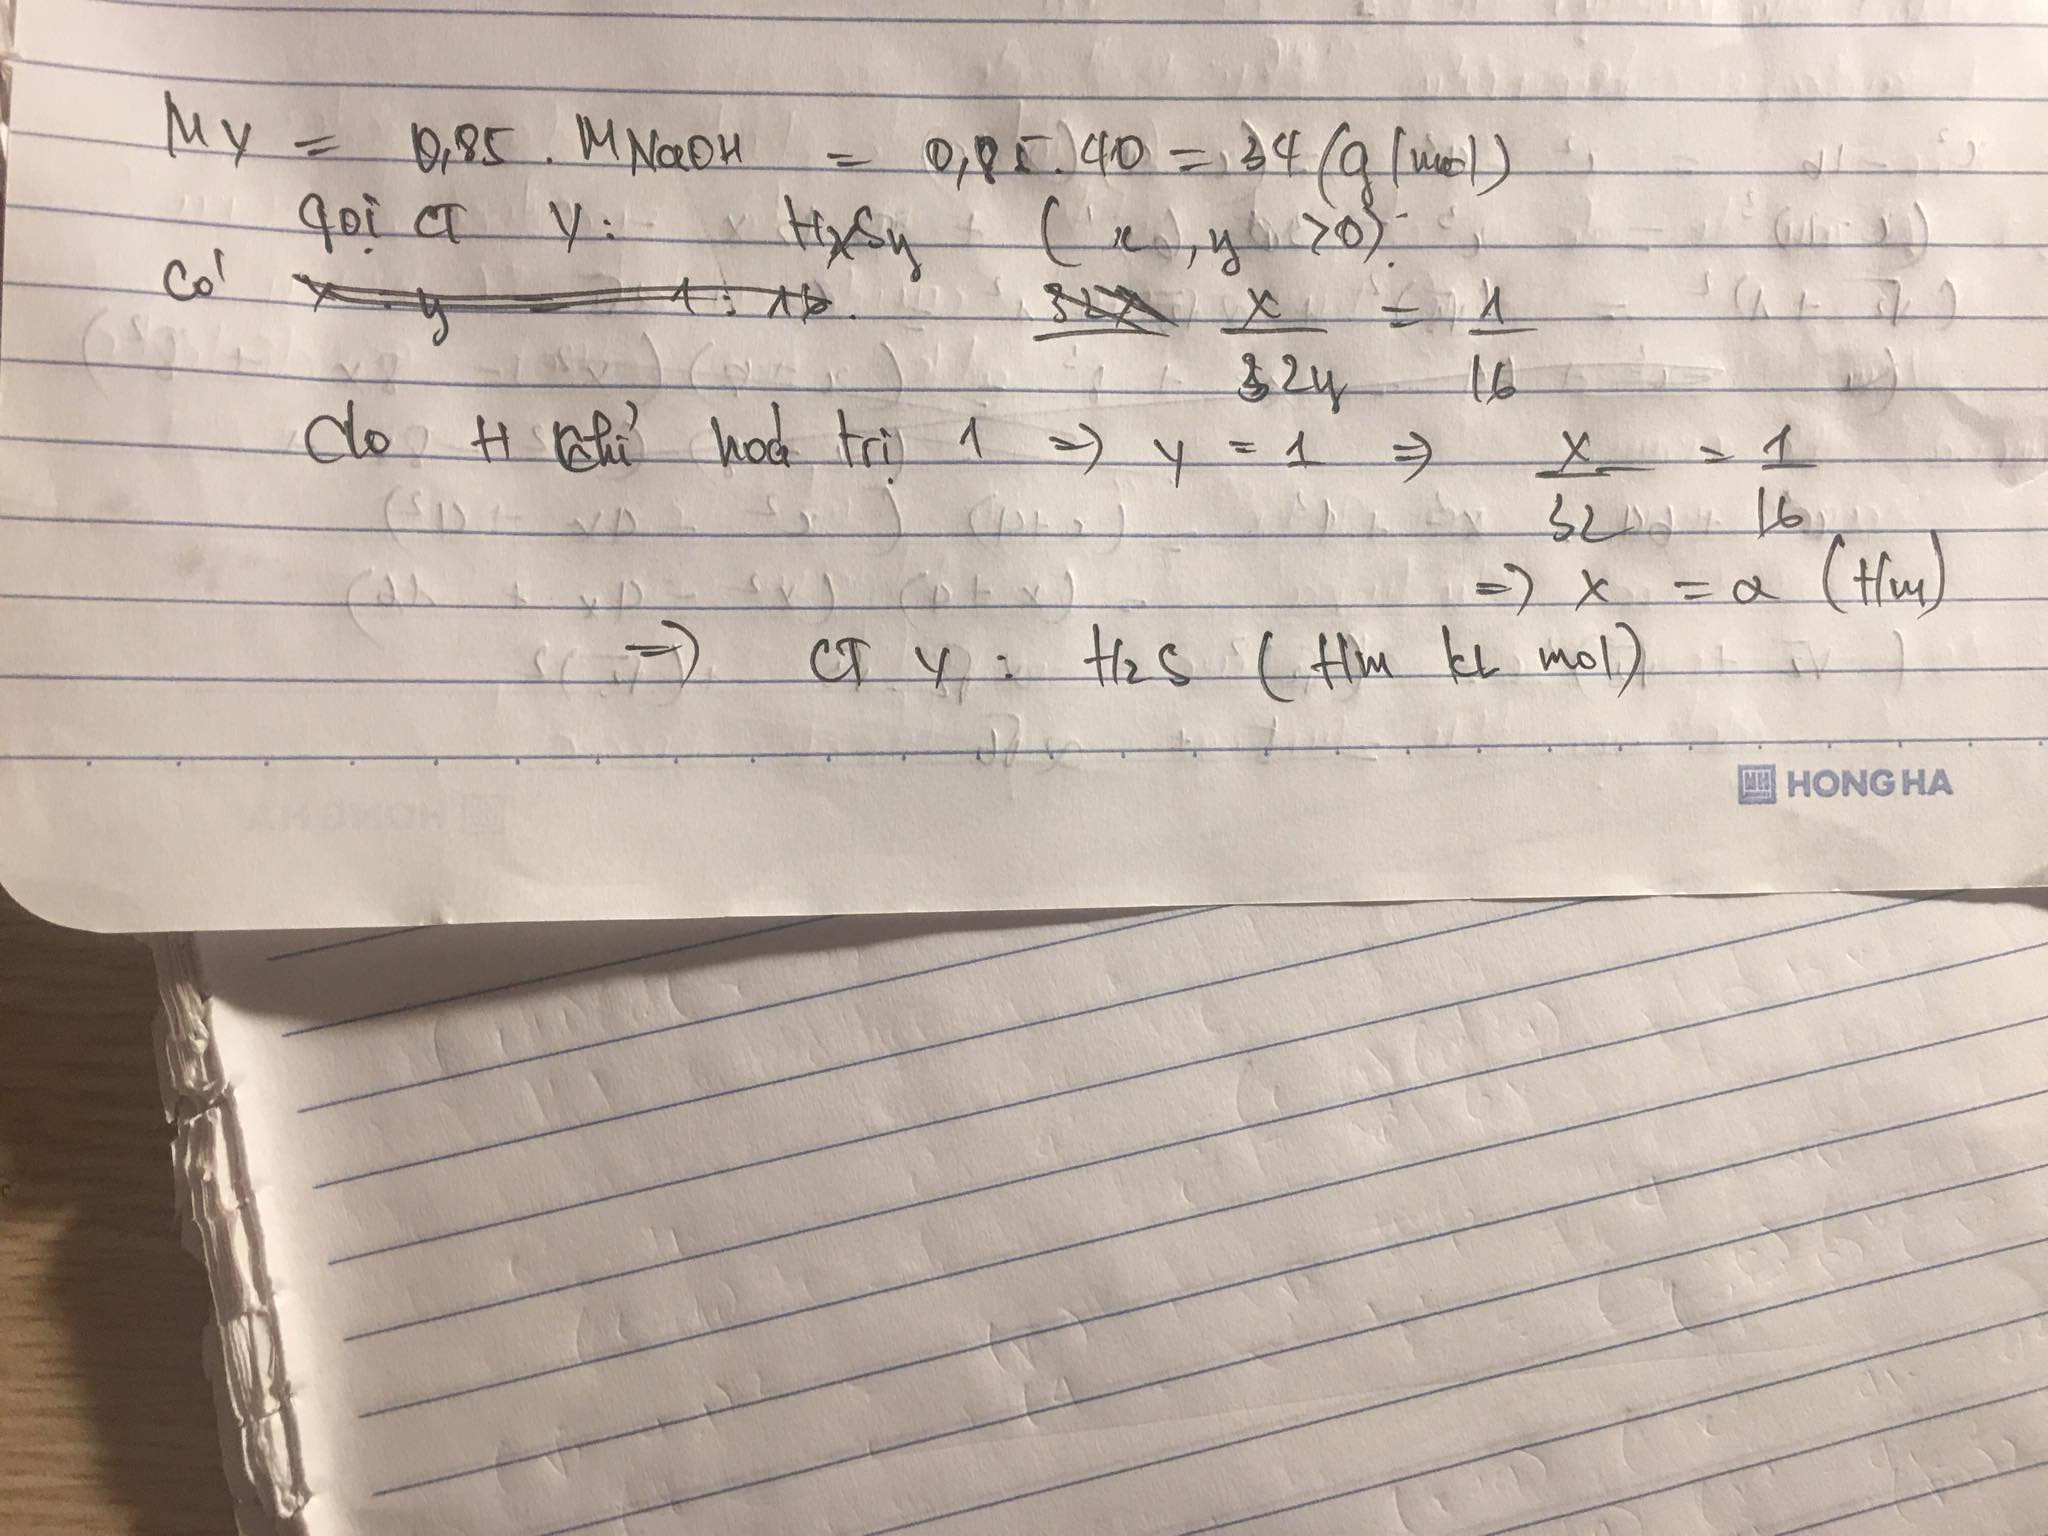 MY = 0,85 . MNaOH = 0,85.40 = 34 (g/mol)
gọi CT Y: HxSy (x, y >0).
Có x y = 1 : 16. 32x x/32y = 1/16
do H chỉ hoá trị 1 => y = 1 => x/32 = 1/16
=> x = 2 (t/m)
=> CT Y : H2S (t/m kl mol)
HONG HA